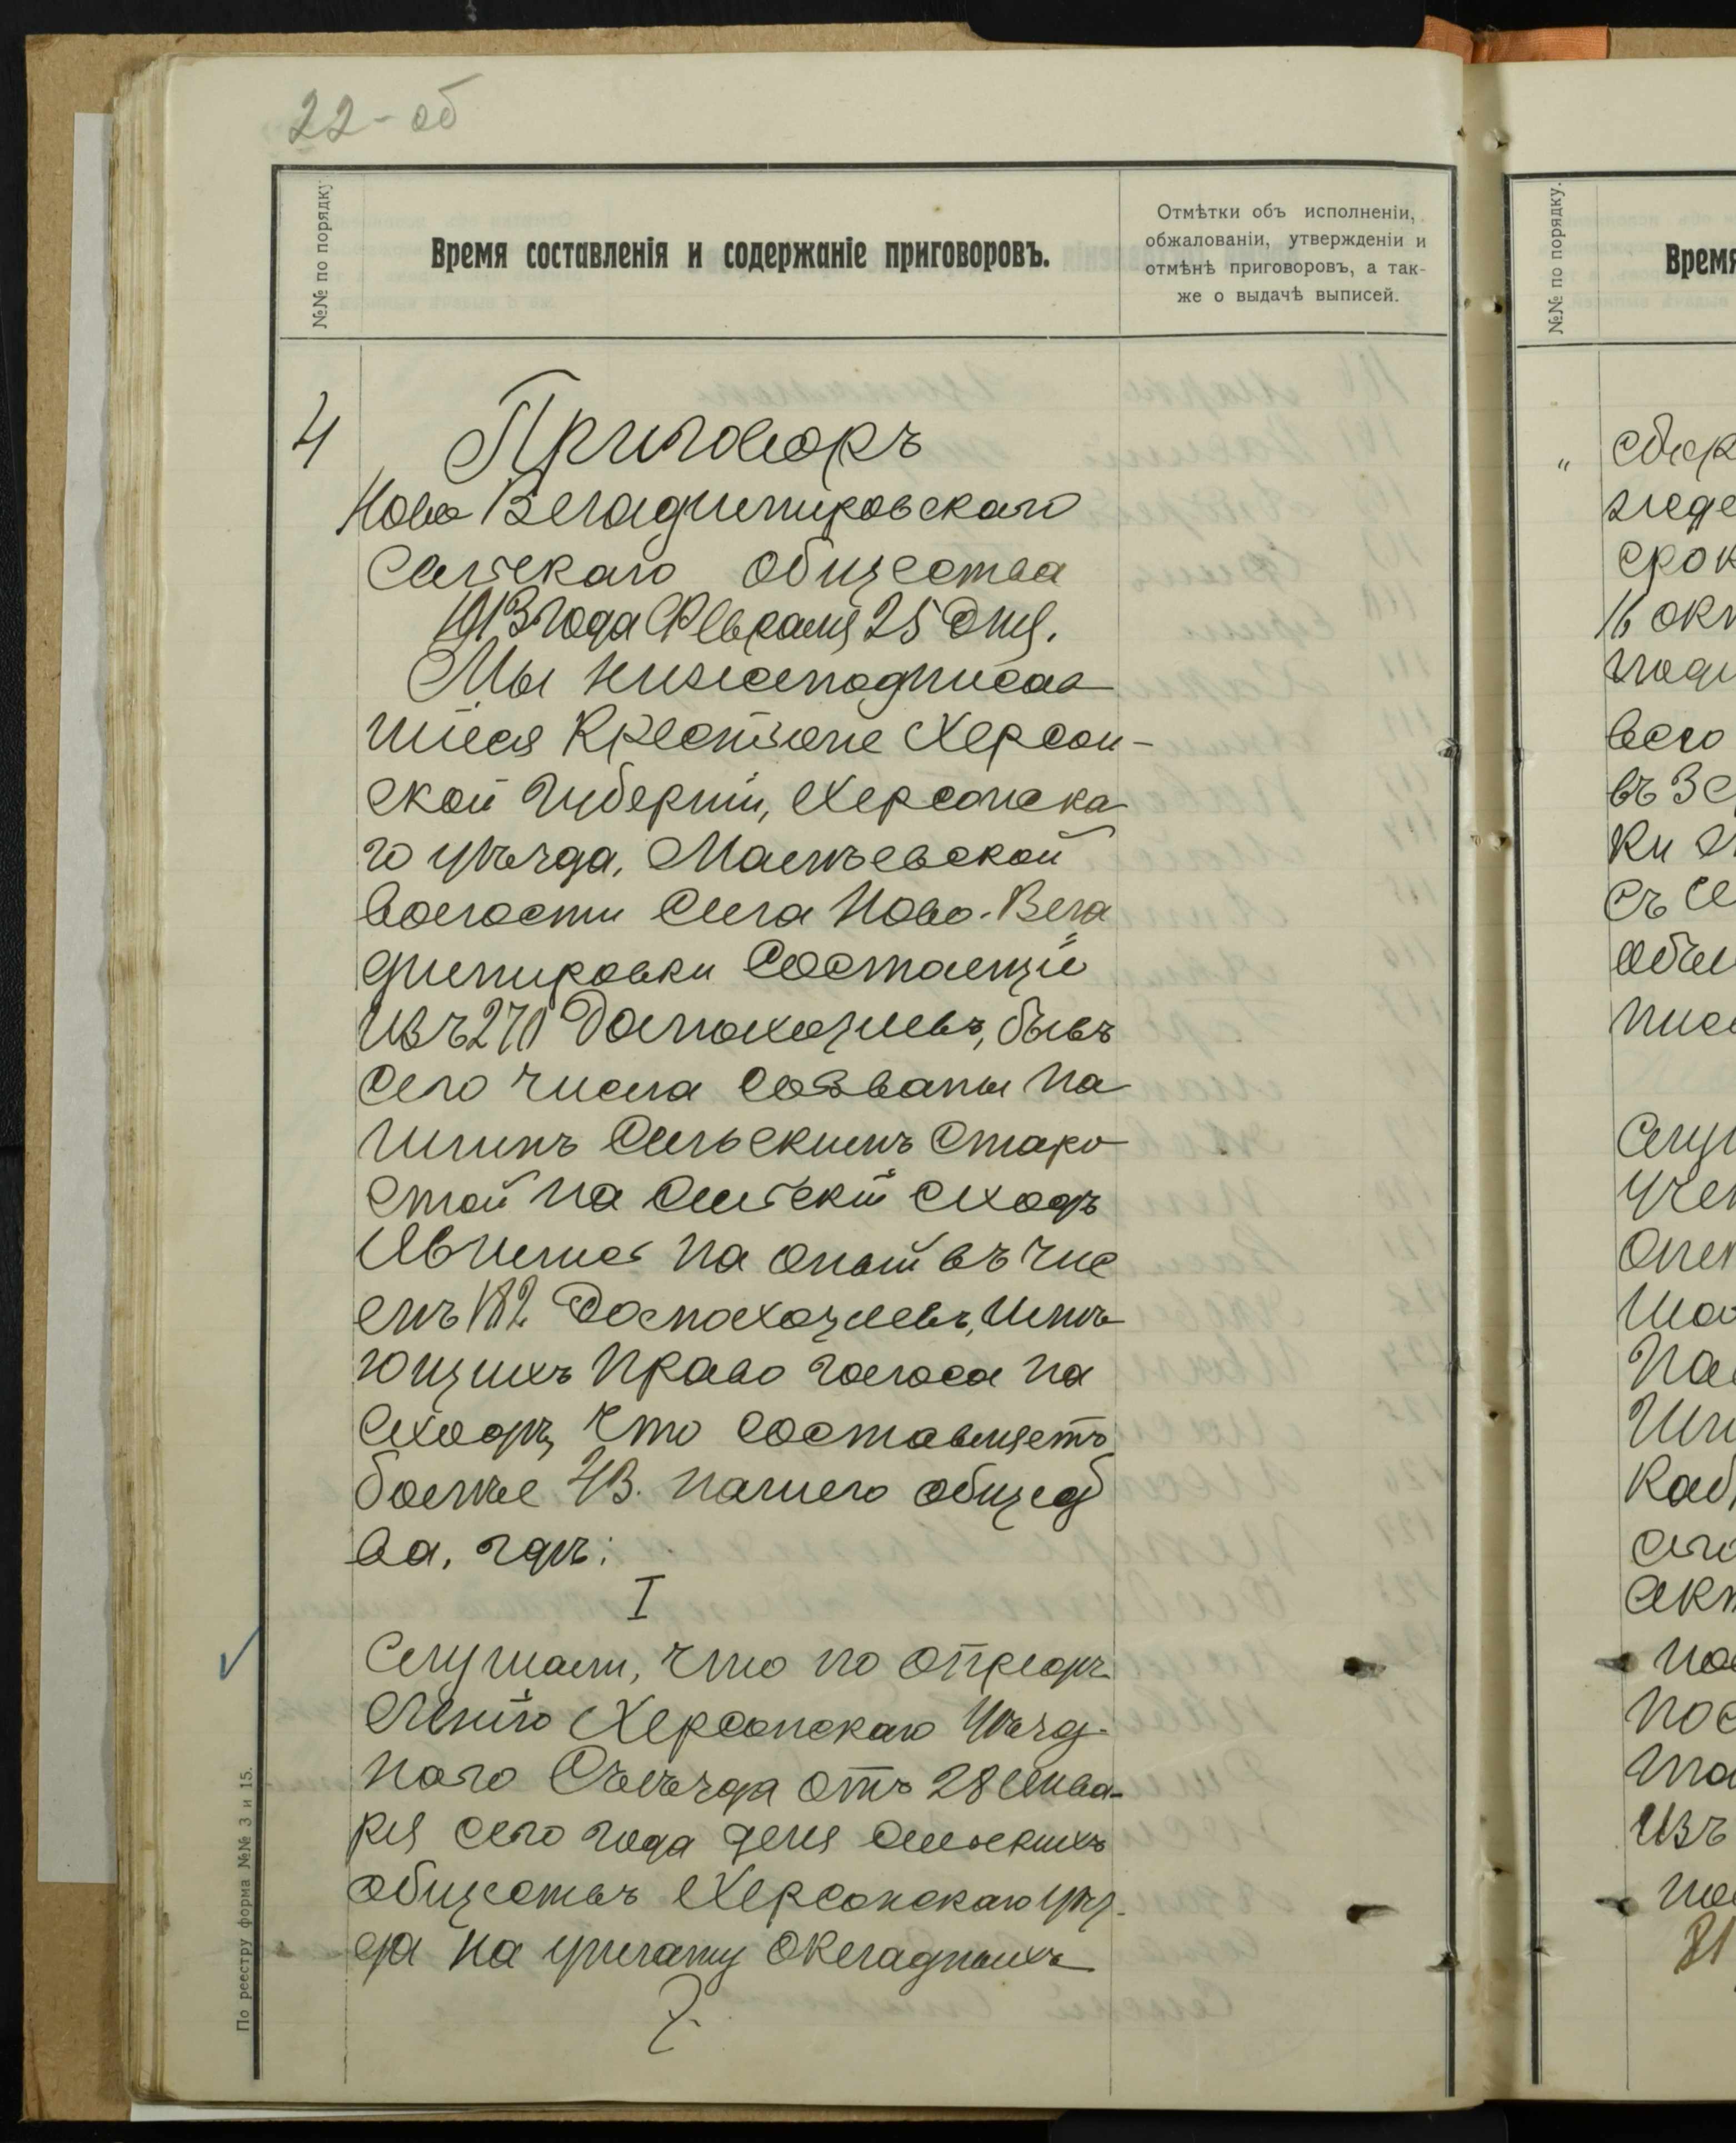 22-об
№№ по порядку
Время составленія и содержаніе приговоровъ.
Отмѣтки объ исполненіи,
обжалованіи, утвержденіи и
отмѣнѣ приговоровъ, а так-
же о выдачѣ выписей.
4
Приговоръ
Ново Владимировскаго
Сельскаго общества
1913 года Февраля 25 дня.
Мы нижеподписав
шіеся Крестьяне Херсон-
ской Губерніи, Херсонска
го уѣзда,
волости Села Ново-Вла
димировки Состоящіе
изъ 270 Домохозяевъ, бывъ
сего числа созваны на
шимъ Сельскимъ Старо
стой на Сельскій сходъ
явились на оный въ чис
лѣ 182 Домохозяевъ, имѣ
ющихъ право голоса на
сходѣ, что составляетъ
болѣе 2/3. нашего общест
ва, гдѣ:
I
Слушали, что по опредѣ
ленію Херсонскаго Уѣзд-
наго Съѣзда отъ 28 Янва-
ря сего года для Сельскихъ
обществъ Херсонскаго уѣз-
да на уплату окладныхъ
По реестру форма №№ 3 и 15.
№№ по порядку.
сбор
срок
16 окт
всего
въ 3 с
ки
съ се
Слу
изъ